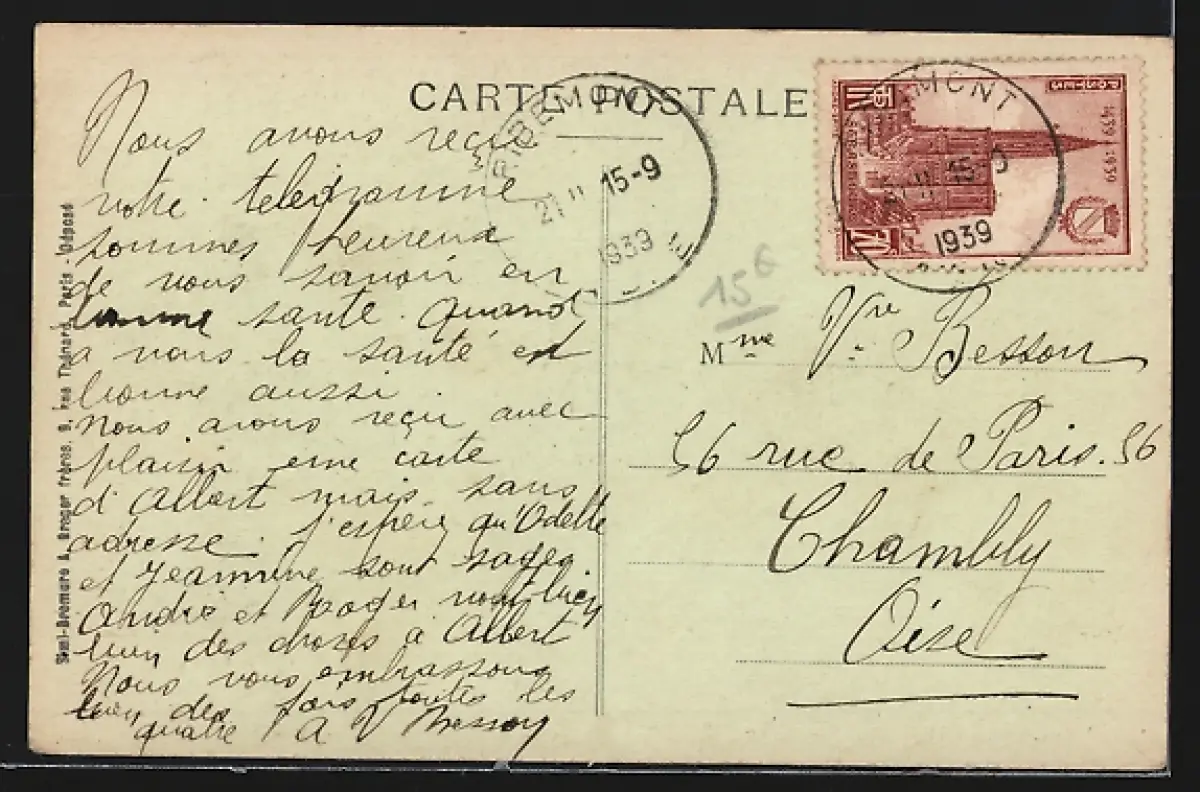 CARTE POSTALE
Nous avons reçu
votre telegramme
sommes heureux
de vous savoir en
bonne santé. Quand
a nous la santé est
bonne aussi
Nous avons reçu avec
plaisir une carte
d'Albert mais sans
adresse. j'espère qu'Odette
et Jeannine sont sages.
André et Roger vont bien
bien des choses à Albert
Nous vous embrassons
bien des fois toutes les
quatre A V Besson
RIBEMONT
21 11 15-9
1939
MONT
15-9
1939
POSTES
1439 1939
STRASBOURG
70
15€
Mme Vve Besson
56 rue de Paris. 56
Chambly
Oise
Semi-Bromure A. Breger frères, 9, rue Thénard, Paris Déposé